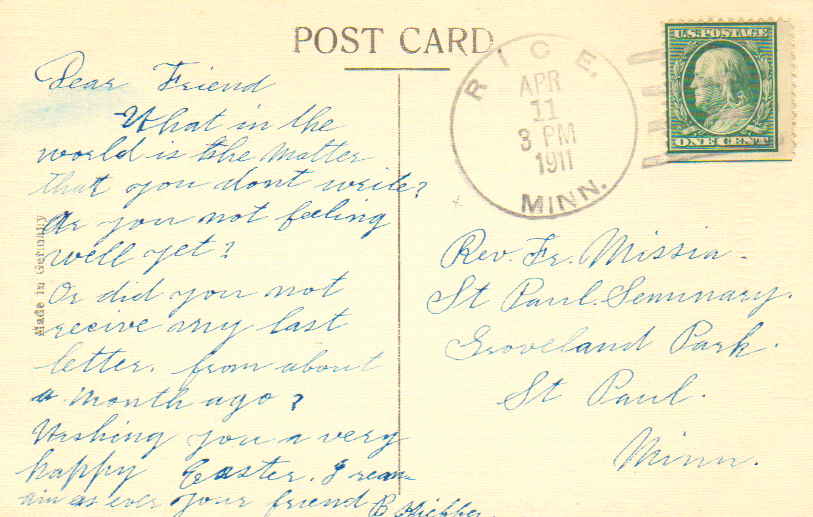 POST CARD.
RICE,
APR
11
3 PM
1911
MINN.
U.S. POSTAGE
ONE CENT
Dear Friend
What in the
world is the matter
that you dont write?
Ar you not feeling
well yet?
Or did you not
recive my last
letter. from about
a month ago?
Wishing you a very
happy Easter. I rem-
ain as ever your friend
Made in Germany
Rev. Fr. Missia.
St Paul. Seminary.
Groveland Park.
St Paul.
Minn.